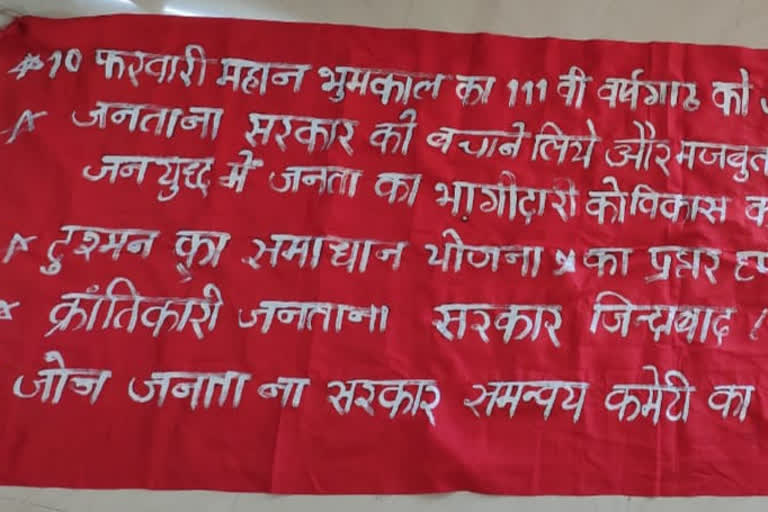 * 10 फरवारी महान भुमकाल का 111 वी वर्षगाठ को
* जनताना सरकार को बचाने लिये और मजबुत
जनयुद्ध में जनता का भागीदारी को विकास
* दुश्मन का समाधान योजना का प्रहार
* क्रांतिकारी जनताना सरकार जिन्दाबाद !
जोज जनताना सरकार समन्वय कमेटी का